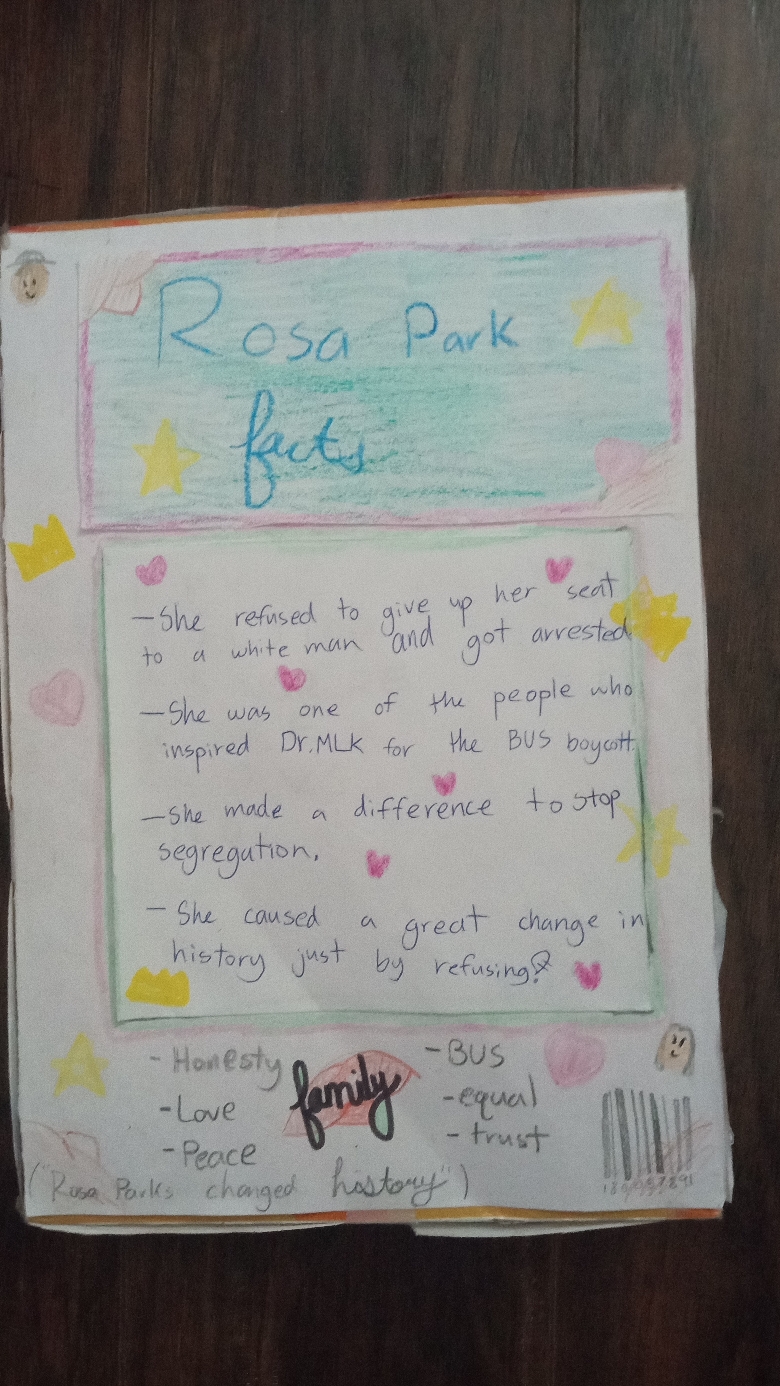 Rosa Park
facts
-She refused to give up her seat
to a white man and got arrested
-She was one of the people who
inspired Dr.MLK for the BUS boycott.
-She made a difference to stop
segregation.
- She caused a great change in
history just by refusing!
- Honesty
-Love
-Peace
family
-BUS
-equal
- trust
("Rosa Parks changed history")